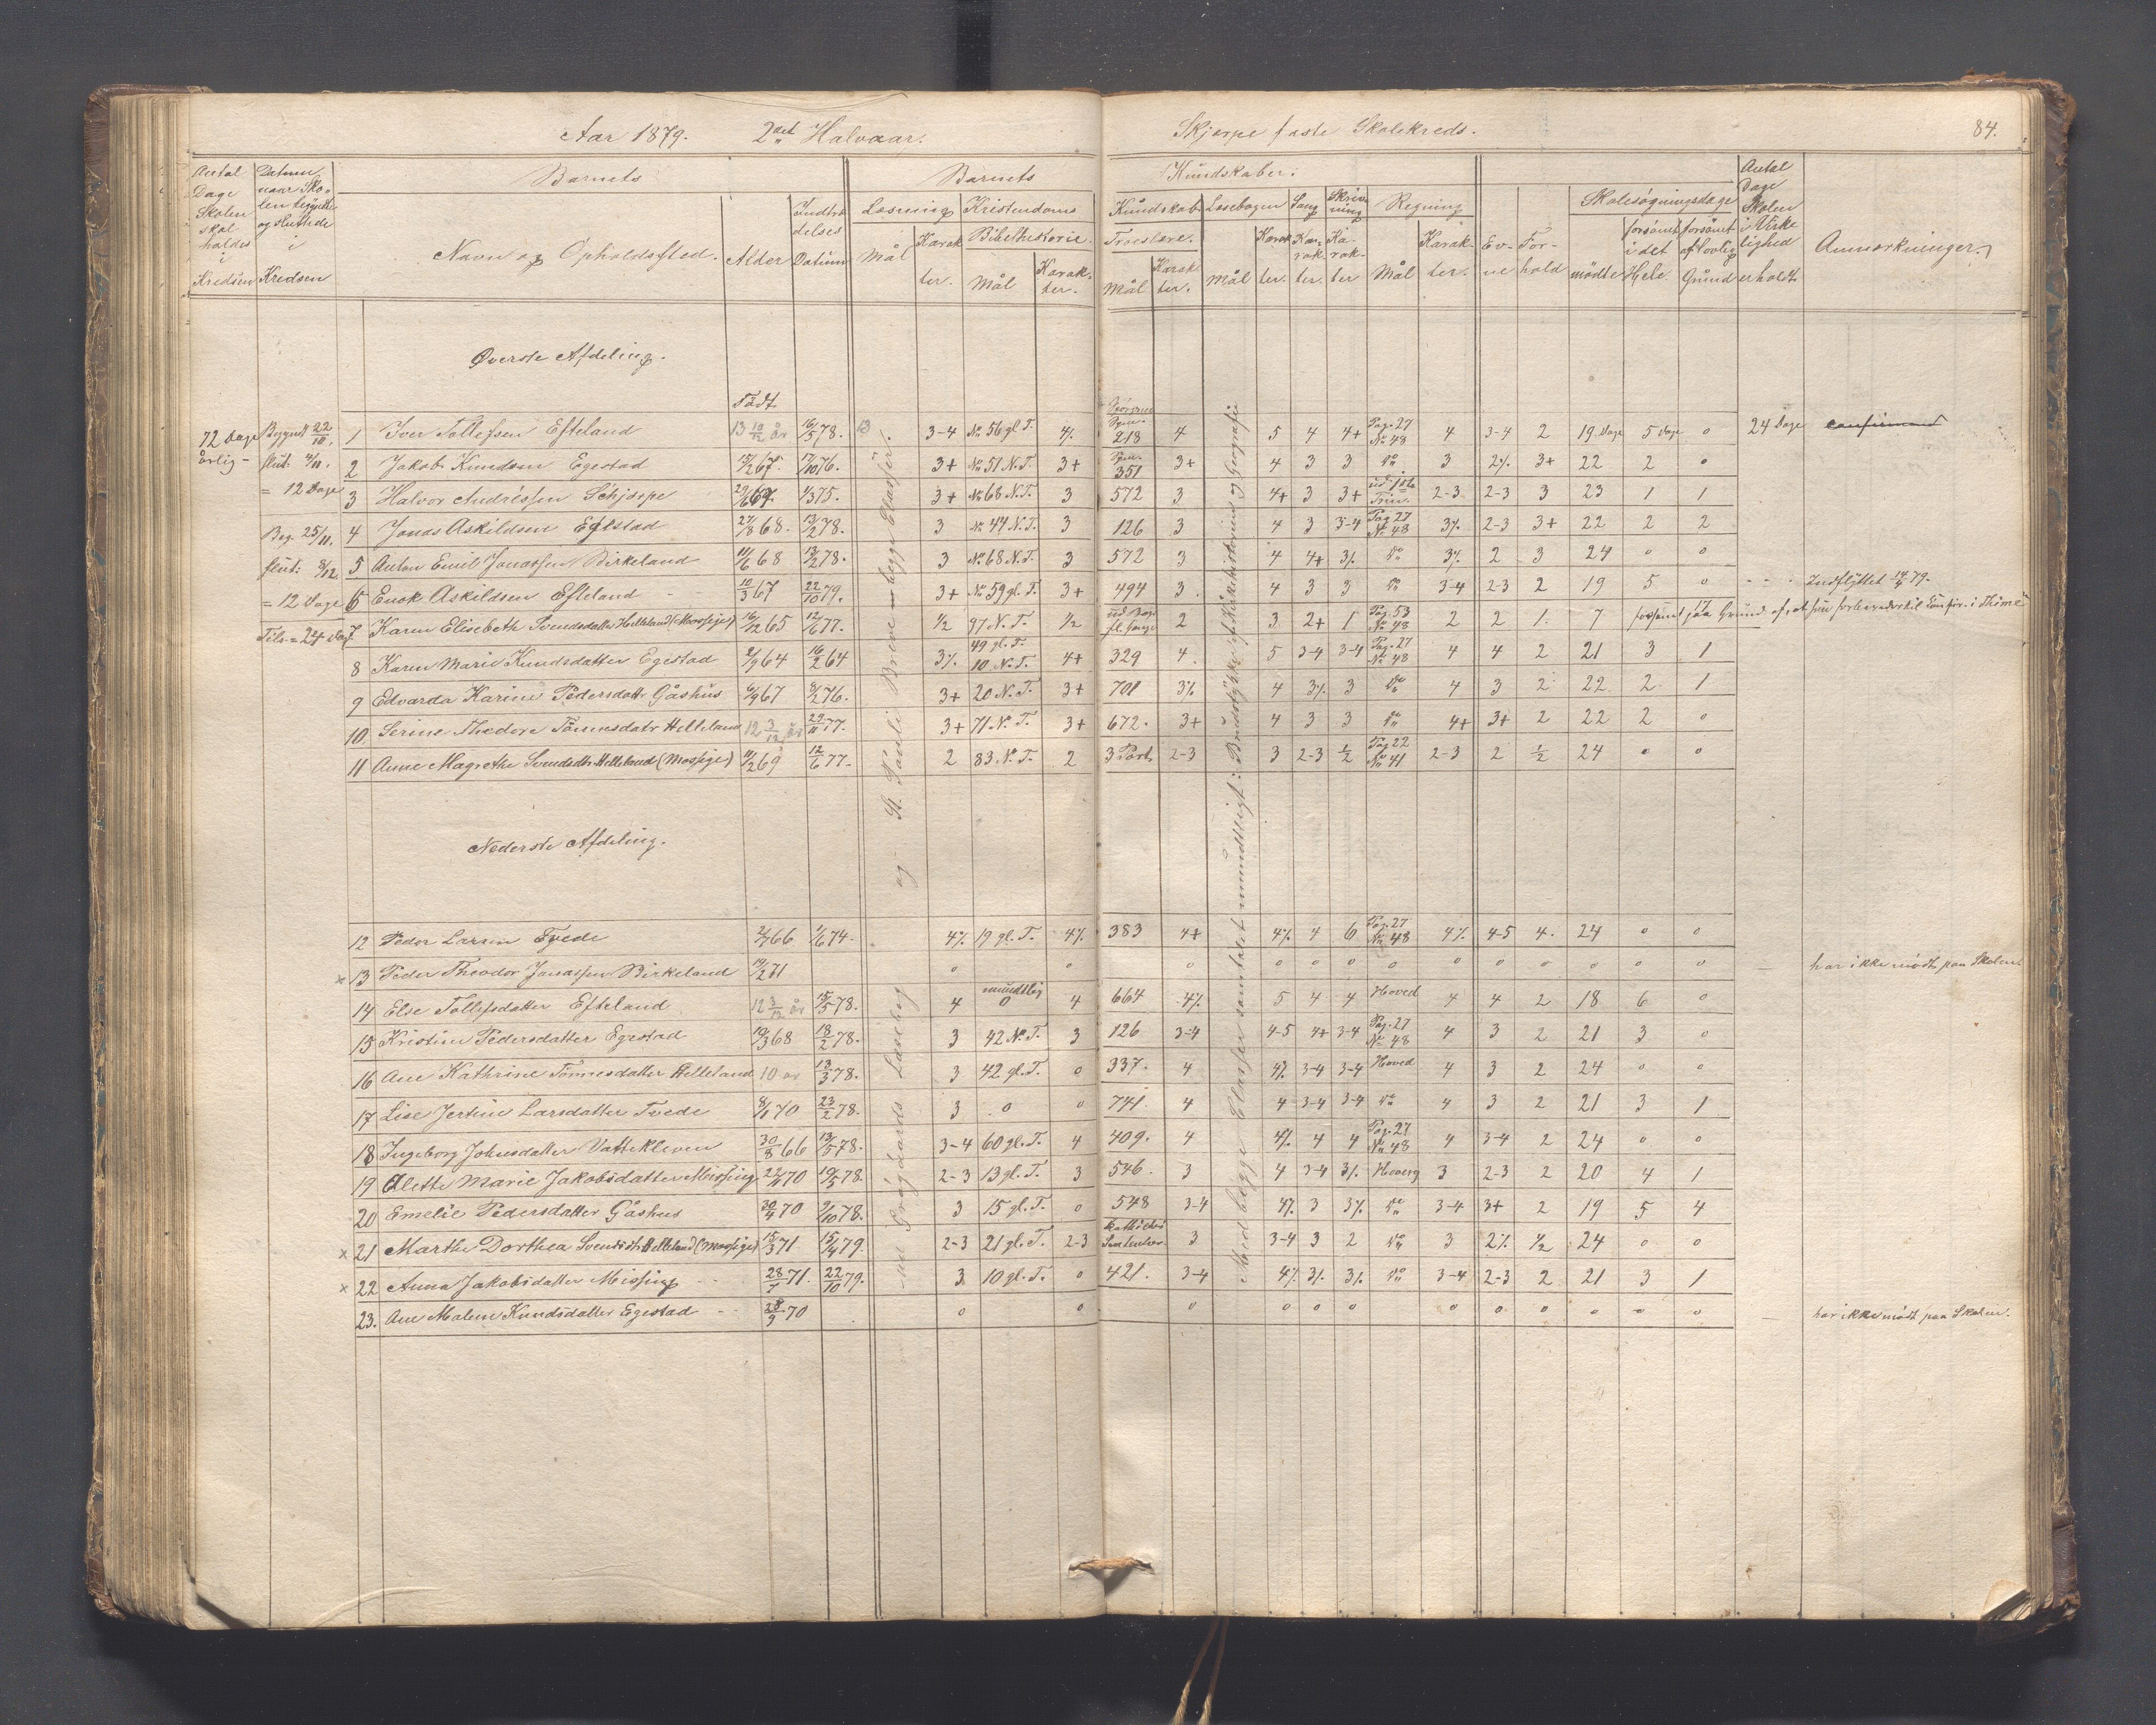 Aar 1879. 2det Halvaar.
Skjerpe faste Skolekreds. 84.
Antal Dage Skolen skal holdes i Kredsen
Datum, naar Skolen begyndte og sluttede i Kredsen
Barnets
Navn og Opholdssted. Alder Indtrædelses Datum
Barnets
Læsning Mål Karakter.
Kristendoms Bibelhistorie. Mål Karakter.
Kundskaber:
Kundskab Troeslære. Mål Karakter.
Læsebogen Mål Karakter.
Sang Karakter.
Skrivning Karakter
Regning Mål Karakter.
Evne Forhold
Skolesøgningsdage mødte forsømt i det Hele forsømt af lovlig Grund
Antal Dage Skolen i Virkelighed erholdt
Anmærkninger.
Øverste Afdeling.
Født
72 Dage årlig -
Begyndt 22/10.
slut: 4/11.
= 12 Dage
Beg. 25/11.
slut: 8/12.
= 12 Dage
Tils. = 24 Dag
1 Iver Tollefsen Efteland 13 10/12 år 16/5 78. 3-4 No 56 gl. T. 4% 218 4 5 4 4+ Pag. 27 No 48 4 3-4 2 19 Dage 5 Dage 0 24 Dage confirmand
2 Jakob Knudsen Egestad 15/2 67. 17/10 76. 3+ No 51 N. T. 3+ 351 3+ 4 3 3 do 3 2% 3+ 22 2 0
3 Halvor Andréssen Schjerpe 29/6 67. 1/3 75. 3+ No 68 N. T. 3 572 3 4+ 3 3+ 2-3 2-3 3 23 1 1
4 Jonas Askildsen Egestad 27/8 68. 13/2 78. 3 No 44 N. T. 3 126 3 4 3 3-4 Pag 27 No 48 3% 2-3 3+ 22 2 2
5 Anton Emil Jonassen Birkeland 11/6 68 13/2 78. 3 No 68 N. T. 3 572 3 4 4+ 3% do 3% 2 3 24 0 0
6 Enok Askildsen Efteland 10/3 67 22/10 79. 3+ No 59 gl. T. 3+ 494 3. 4 3 3 do 3-4 2-3 2 19 5 0 Indflyttet 14/4 79.
7. Karen Elisebeth Svendsdatter Helleland (Mossige) 16/12 65 12/6 77. 1/2 97 N. T. 1/2 2 3 2+ 1 Pag. 53 No 48 2 2 1. 7 forsømt 17 paa Grund af, at hun forbereder til Confir. i Thime
8 Karen Marie Knudsdatter Egestad 2/9 64 16/2 64 3% 49 gl. T. 10 N. T. 4+ 329 4. 5 3-4 3-4 Pag. 27 No 48 4 4 2 21 3 1
9 Edvarda Karine Pedersdatt. Gåshus 6/9 67 8/2 76. 3+ 20 N. T. 3+ 701 3% 4 3% 3 do 4 3 2 22 2 1
10. Serine Thedore Tönnesdatr Helleland 12 3/12 år 29/11 77. 3+ 71 N. T. 3+ 672. 3+ 4 3 3 do 4+ 3+ 2 22 2 0
11 Anne Magrethe Svendsdtr Helleland (Mossige) 11/2 69 12/6 77. 2 83 N. T. 2 3 Part. 2-3 3 2-3 1/2 Pag 22 No 41 2-3 2 1/2 24 0 0
Nederste Afdeling.
12 Peder Larsen Tvede 2/7 66 1/6 74. 4% 19 gl. T. 4% 383 4+ 4% 4 6 Pag. 27 No 48 4% 4-5 4. 24 0 0
x 13 Peder Theodor Jonassen Birkeland 19/2 71 0 0 0 0 0 0 0 0 0 0 0 0 0 har ikke mødt paa Skolen.
14 Else Tollefsdatter Efteland 12 3/12 år 15/5 78. 4 mundtlig 0 4 664 4% 5 4 4 Hoved 4 4 2 18 6 0
15 Kristine Pedersdatter Egestad 19/3 68 18/2 78. 3 42 N. T. 3 126 3-4 4-5 4+ 3-4 Pag. 27 No 48 4 3 2 21 3 0
16 Ane Kathrine Tönnesdatter Helleland 10 år 13/3 78. 3 42 gl. T. 0 337. 4 4% 3-4 3-4 Hoved 4 3 2 24 0 0
17 Lise Jertine Larsdatter Tvede 8/11 70 23/2 78. 3 0 0 741. 4 4 3-4 3-4 do 4 3 2 21 3 1
18 Ingeborg Johnsdatter Vattekleven 30/8 66 13/5 78. 3-4 60 gl. T. 4 409. 4 4% 4 4 Pag. 27 No 48 4 3-4 2 24 0 0
19 Alette Marie Jakobsdatter Missing 22/11 70 19/5 78. 2-3 13 gl. T. 3 546. 3 4 3-4 3% Hoverg 3 2-3 2 20 4 1
20 Emelie Pedersdatter Gåshus 30/4 70 9/10 78. 3 15 gl. T. 0 548 3-4 4% 3 3% do 3-4 3+ 2 19 5 4
x 21 Marthe Dorthea Svendsdtr Helleland (Mossige) 15/3 71 15/4 79. 2-3 21 gl. T. 2-3 3 3-4 3 2 do 3 2% 1/2 24 0 0
x 22 Anna Jakobsdatter Missing 28/7 71. 22/10 79. 3 10 gl. T. 0 421. 3-4 4% 3% 3% do 3-4 2-3 2 21 3 1
23. Ane Malene Knudsdatter Egestad 28/9 70 0 0 0 0 0 0 0 0 0 0 0 har ikke mødt paa Skolen.
Læsebog og St. Pauli Breve - begge Classer.
Med begge Classer samtalet mundtligt: Brudstykker af Kirkehistorien og Geografie